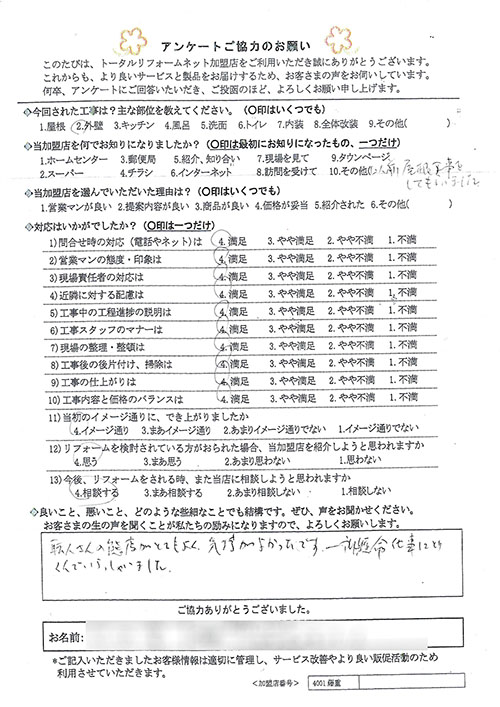 アンケートご協力のお願い
このたびは、トータルリフォームネット加盟店をご利用いただき誠にありがとうございます。
これからも、より良いサービスと製品をお届けするため、お客さまの声をお伺いしています。
何卒、アンケートにご回答いただいたいただき、ご投函のほど、よろしくお願い申し上げます。
◆今回された工事は?主な部位を教えてください。(〇印はいくつでも)
1.屋根 2.外壁 3.キッチン 4.風呂 5.洗面 6.トイレ 7.内装 8.全体改装 9.その他( )
◆当加盟店を何でお知りになりましたか?(〇印は最初にお知りになったもの、一つだけ)
1.ホームセンター 3.郵便局 5.紹介、知り合い 7.現場を見て 9.タウンページ
2.スーパー 4.チラシ 6.インターネット 8.訪問を受けて 10.その他(以前屋根工事を
してもらいました
◆当加盟店を選んでいただいた理由は?(〇印はいくつでも)
1.営業マンが良い 2.提案内容が良い 3.商品が良い 4.価格が妥当 5.紹介された 6.その他( )
◆対応はいかがでしたか?(〇印は一つだけ)
1)問合せ時の対応(電話やネット)は 4.満足 3.やや満足 2.やや不満 1.不満
2)営業マンの態度・印象は 4.満足 3.やや満足 2.やや不満 1.不満
3)現場責任者の対応は 4.満足 3.やや満足 2.やや不満 1.不満
4)近隣に対する配慮は 4.満足 3.やや満足 2.やや不満 1.不満
5)工事中の工程進捗の説明は 4.満足 3.やや満足 2.やや不満 1.不満
6)工事スタッフのマナーは 4.満足 3.やや満足 2.やや不満 1.不満
7)現場の整理・整頓は 4.満足 3.やや満足 2.やや不満 1.不満
8)工事後の後片付け、掃除は 4.満足 3.やや満足 2.やや不満 1.不満
9)工事の仕上がりは 4.満足 3.やや満足 2.やや不満 1.不満
10)工事内容と価格のバランスは 4.満足 3.やや満足 2.やや不満 1.不満
11)当初のイメージ通りに、でき上がりましたか
4.イメージ通り 3.まあイメージ通り 2.あまりイメージ通りでない 1.イメージ通りでない
12)リフォームを検討されている方がおられた場合、当加盟店を紹介しようと思われますか
4.思う 3.まあ思う 2.あまり思わない 1.思わない
13)今後、リフォームをされる時、また当店に相談しようと思われますか
4.相談する 3.まあ相談する 2.あまり相談しない 1.相談しない
◆良いこと、悪いこと、どのような些細なことでも結構です。ぜひ、声をお聞かせください。
お客さまの生の声を聞くことが私たちの励みになりますので、よろしくお願いします。
職人さんの態度がとてもよく、気持がよかったです。一所懸命仕事にとり
くんでいらっしゃいました。
ご協力ありがとうございました。
お名前:
*ご記入いただきましたお客様情報は適切に管理し、サービス改善やより良い販促活動のため
利用させていただきます。
<加盟店番号> 4001 藤重